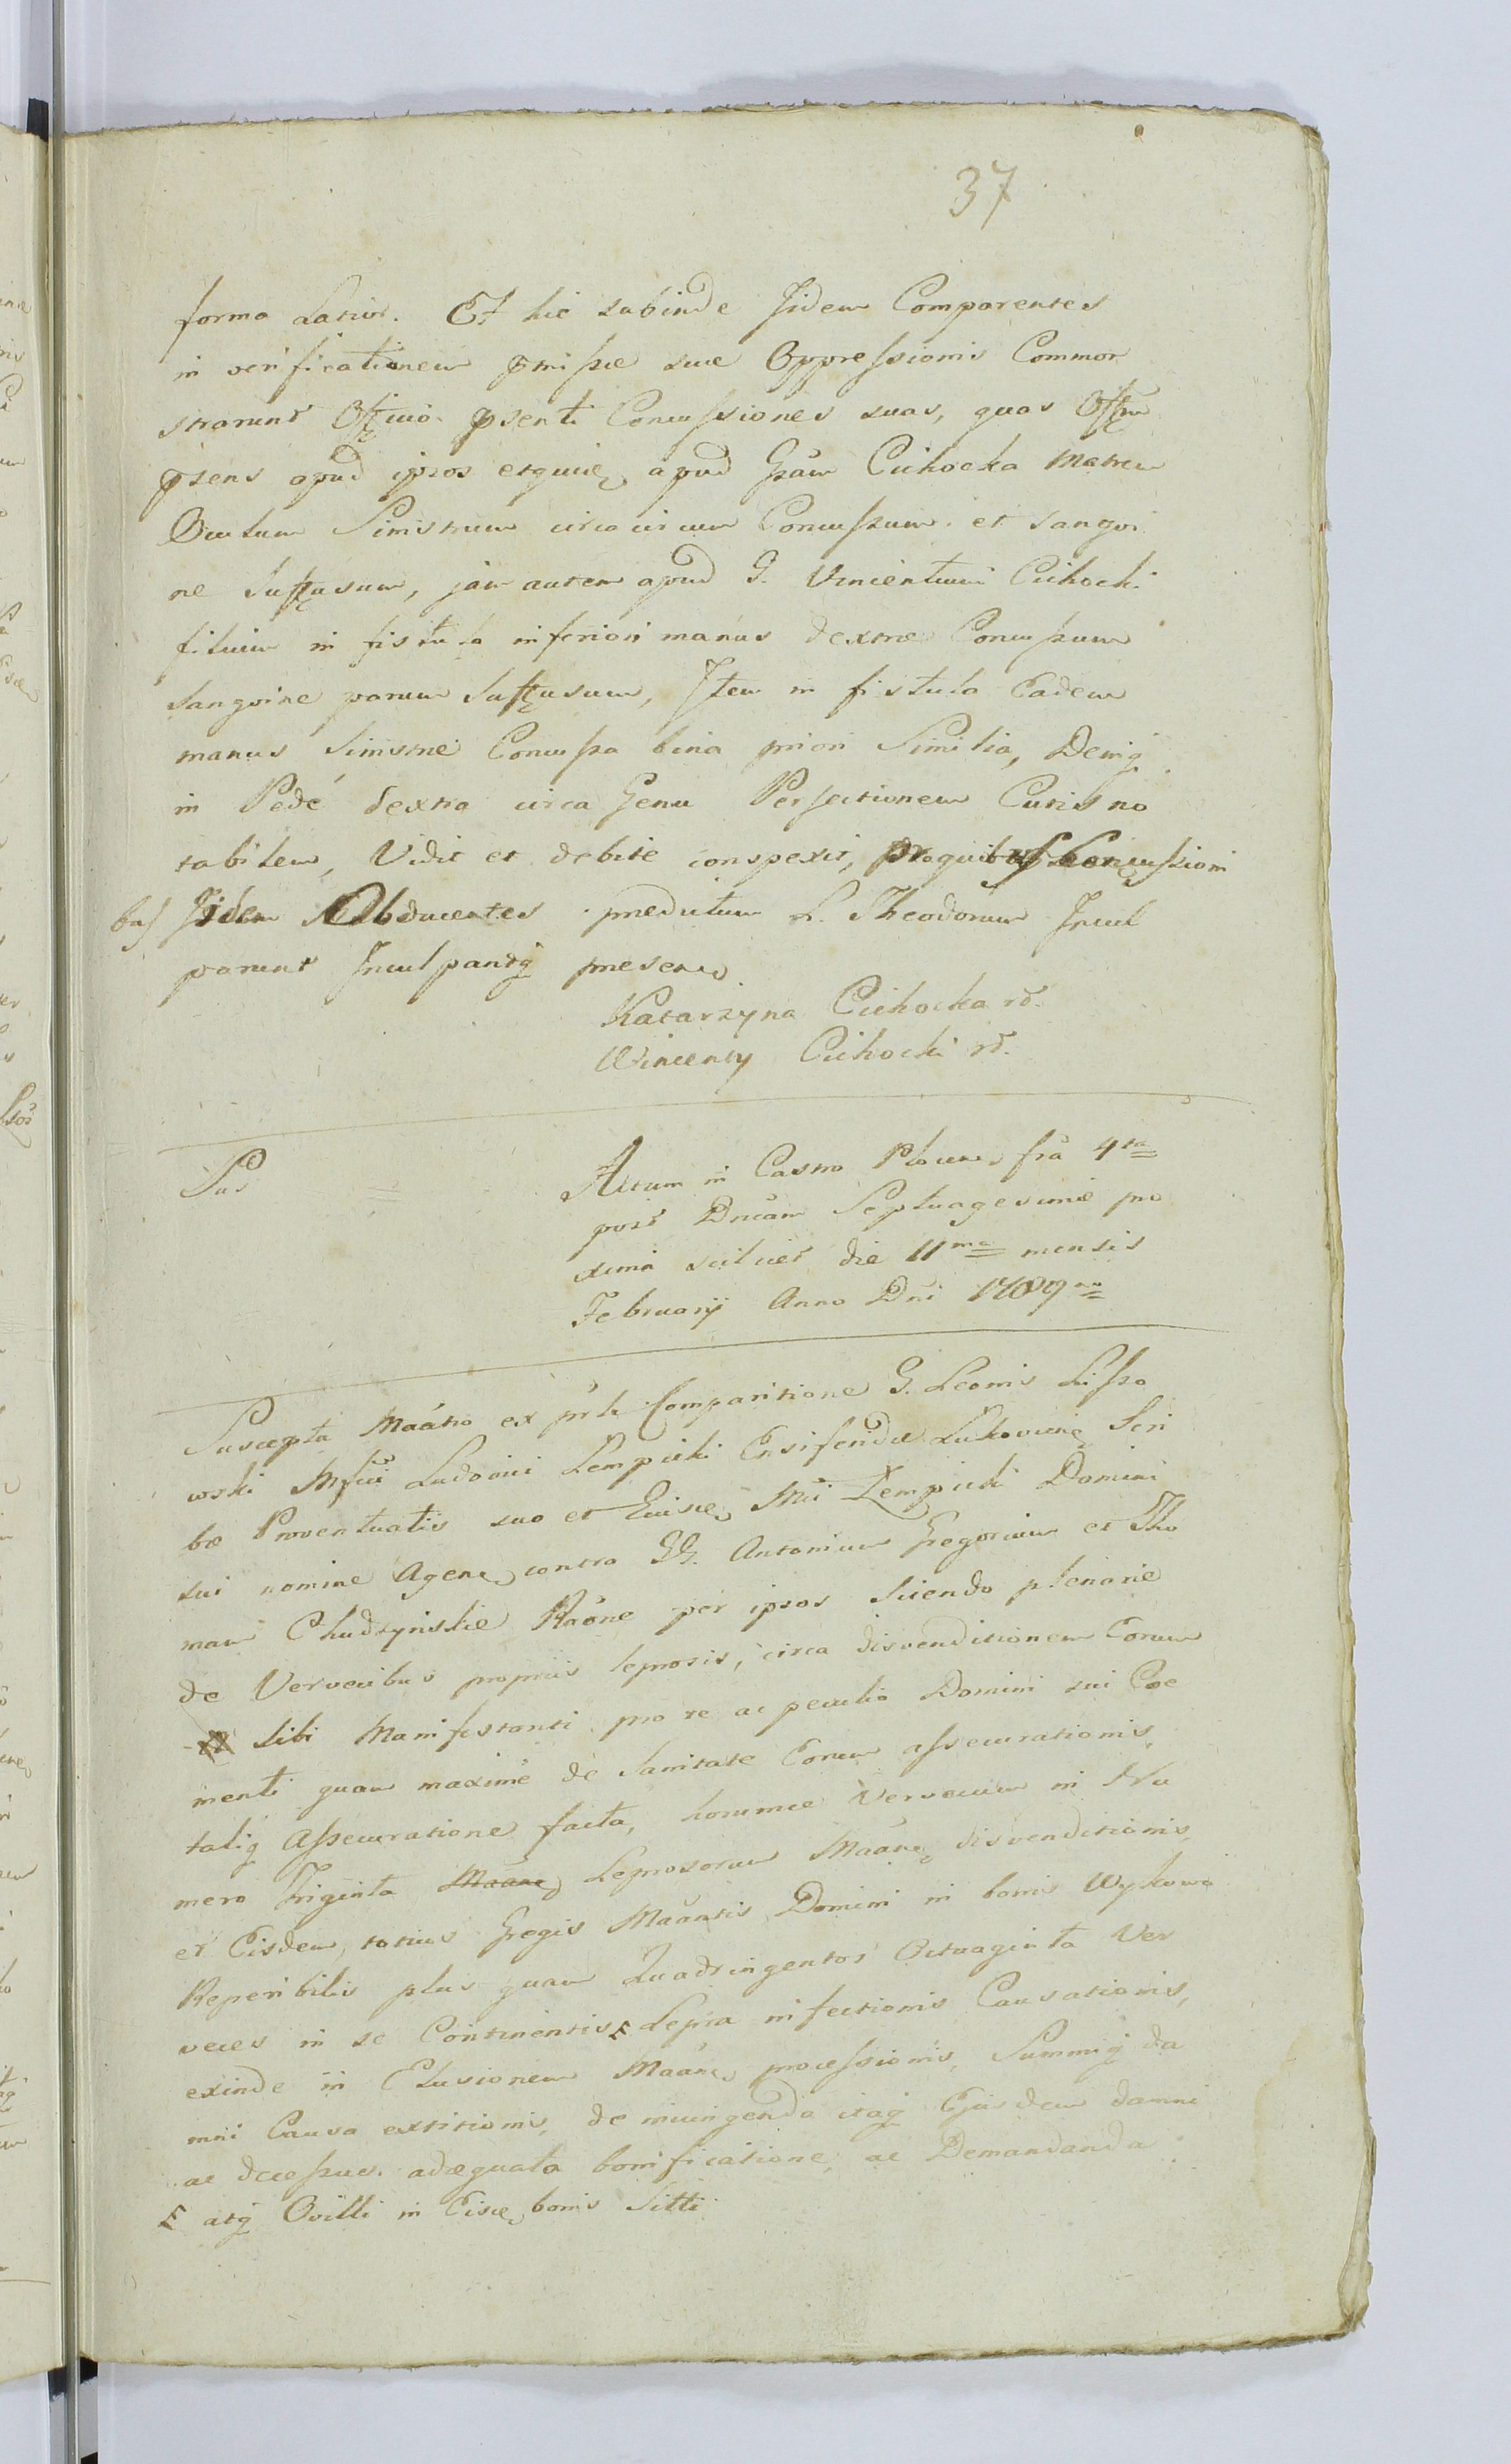 37
forma Latior. Et hic subinde Iidem Comparentes
in verificationem pmissæ suæ Oppressionis Common
strarunt Offio psenti Concussiones suas, quas Offm
psens apud ipsos etquid, apud Gsam Cichocka Matrem
Oculum Sinistrum circucircum Concussum et sangvi
ne Suffusum, jam autem apud G. Vincentium Cichocki
filium in fistula inferiori manus dextræ Concussum
Sangvine parum Suffusum, Item in fistula Eadem
manus Sinistræ Concussa bina priori Similia, Deniq
in Pede dextro circa Genu Persectionem Cutis no
tabilem, Vidit et debite conspexit, pro quibus Concussioni
bus Iidem Obducentes predictum L. Theodorum Incul
parunt Inculpantq presenes
Katarzyna Cichocka rō.
Wincenty Cichocki rō.
Sus
Actum in Castro Plocen. fīa 4ta
post Dncam Septuagesimæ pro
xima scilicet die 11ma mensis
Februarij Anno Dni 1789no
Suscepta Maātio ex prli Comparitione G. Leonis Lisso
wski Mfici Ludovici Lempicki Ensiferidæ Lukoviens Scri
bæ Proventualis suo et Eiusd Mci Lempicki Domini
sui nomine Agens contra GG. Antonium Gregorium et Tho
mam Chudzynskie Raōne per ipsos Sciendo plenarie
de Vervecibus propriis leprosis, circa disvenditionem Eorum
Sibi Manifestanti pro re ac peculio Domini sui Coe
menti quam maxime de Sanitate Eorum assecurationis,
taliq Assecuratione facta, horumce Vervecum in Nu
mero Triginta Maane Leprosorum Maane disvenditionis,
et Eisdem totius Gregis Maantis Domini in bonis Wykowo
Reperibilis plus quam Quadringentos Octuaginta Ver
veces in se Continentis Lepra infectionis Causationis,
exinde in Elusionem Maane processionis, Summiq da
mni Causa extitionis, de iniungenda itaq Ejusdem damni
ac decessus adæquata bonificatione, ac Demandanda
atq Ovilli in Eisd bonis Sitti